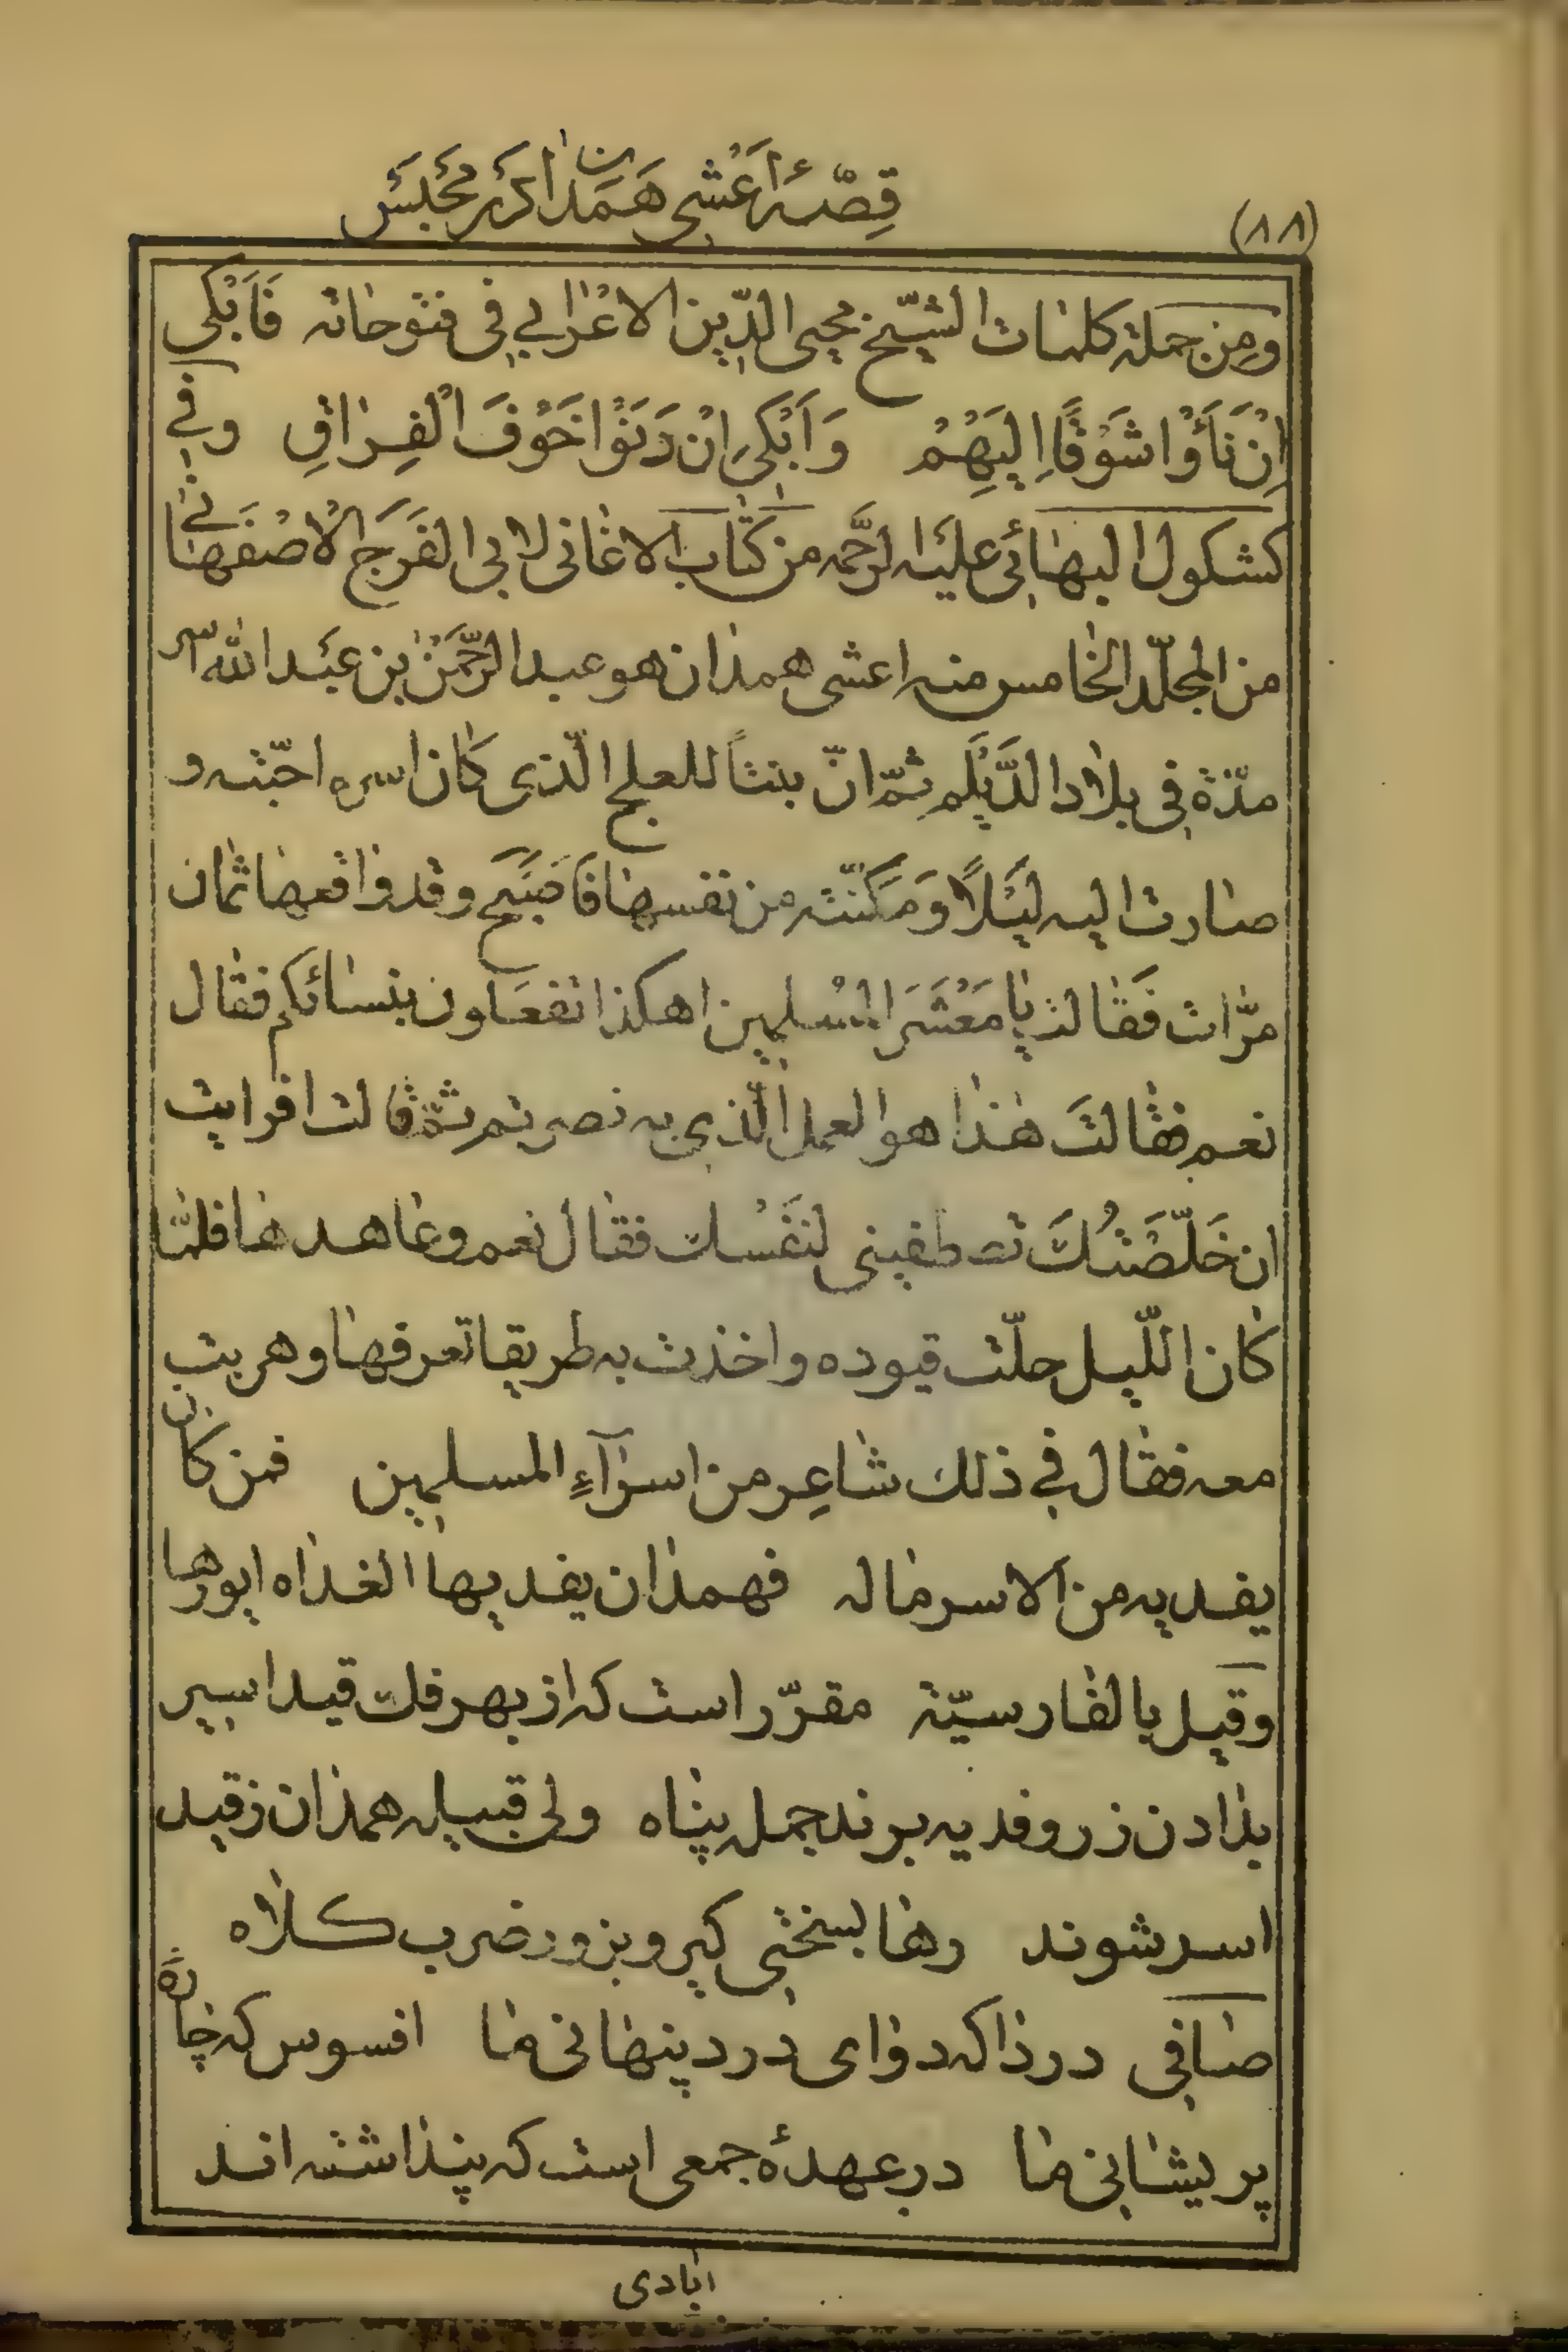 (۸۸)
قِصّهٔ اَعْشی هَمَدان در مَحْبَس
وَمِن جملة کلمات الشیّخ محیی الدّین الاعْرابی فی فتوحاته فَاَبْکی
اِنْ نَأَوْا شَوْقًا اِلَیْهِمْ وَاَبْکی اِنْ دَنَوْا خَوْفَ الْفِرٰاقِ وفی
کشکول البهائی علیه الرَّحمه من کتاب الاغانی لابی الفَرَج الاصْفَهانی
من المجلّد الخامس منه اعشی همدان هو عبد الرَّحْمٰن بن عَبْد الله اسر
مدّة فی بلاد الدَّیْلَم ثمّ انّ بنتاً للعلج الّذی کان اسره احبّته و
صارت الیه لَیْلًا وَمَکَنّته من نفسها فَاَصْبَحَ وقد واقعها ثمان
مرّات فَقالت یا مَعْشَرَ المُسْلمین اهکذا تفعَلون بنسائکم فقال
نعم فقالَت هٰذا هو العمل الّذی به نصرتم ثمّ قالت افرایت
ان خَلّصْتُكَ تصطفینی لنَفْسك فقال نعم وعاهدها فلمّا
کان اللّیل حلّت قیوده واخذت به طریقا تعرفها وهربت
معه فقال فی ذلك شاعِر من اسرآءِ المسلمین فمن کان
یفدیه من الاسر ماله فهمدان یفدیها الغداه ایورها
وقیل بالفارسیّة مقرّر است که از بهر فك قید اسیر
بدادن زر و فدیه برند جمله پناه ولی قبیله همدان ز قید
اسر شوند رها بسختی کیر و بزور ضرب کلاه
صافی دردا که دوای درد پنهانی ما افسوس که چارهٔ
پریشانی ما در عهدهٔ جمعی است که پنداشته اند
آبادی